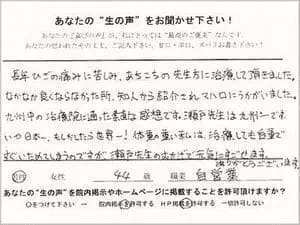 あなたの“生の声”をお聞かせ下さい！
あなたの「喜びの声」が、私にとっては“最高のご褒美”なんです。
あなたの思われたそのまま、ご記入下さい。甘口・辛口、ズバリお書き下さい！
長年ひざの痛みに苦しみ、あちこちの先生方に治療して頂きました。
なかなか良くならなかった所、知人から紹介されマハロにうかがいました。
九州中の治療院に通った素直な感想です。瀬戸先生は九州一です。
いや日本一、もしかしたら世界一！体重の重い私は、治療しても自重で
すぐいためてしまうのですが瀬戸先生のおかげで元気にすごせます。
ありがとうございます。
男性 女性 44歳 職業 自営業
あなたの“生の声”を院内掲示やホームページに掲載することを許可頂けますか？
○をつけて下さい → 院内掲示を許可する HP掲載を許可する 一切許可しない